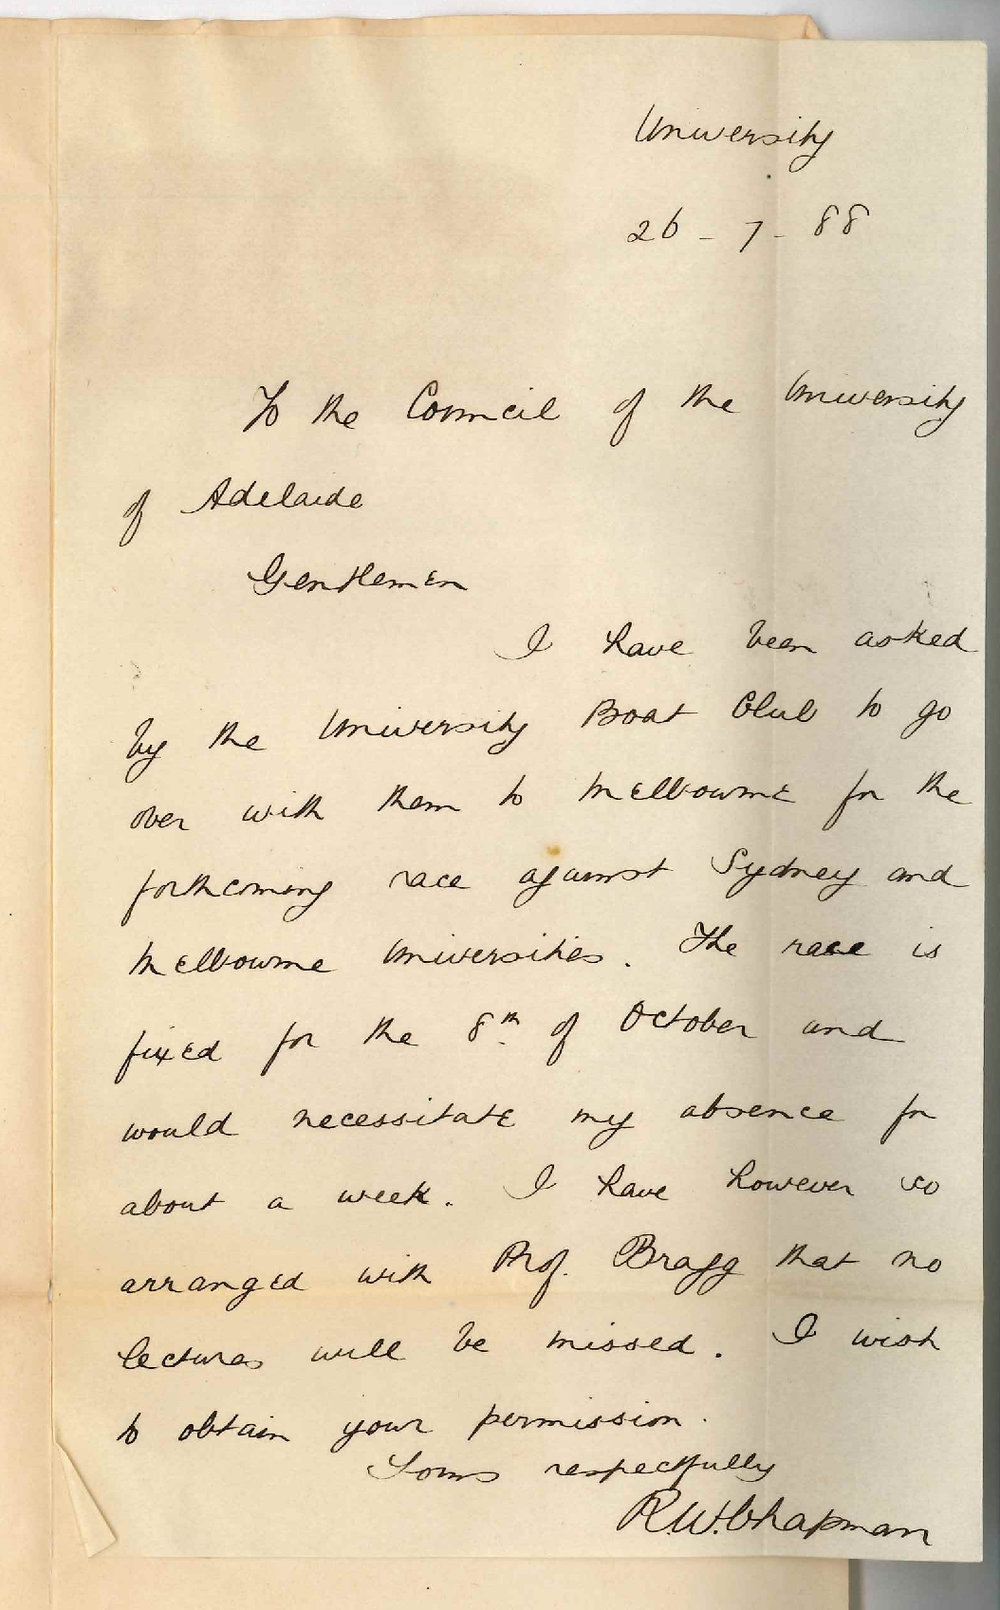 University
26 - 7 - 88
To the Council of the University
of Adelaide
Gentlemen
I have been asked
by the University Boat Club to go
over with them to Melbourne for the
forthcoming race against Sydney and
Melbourne Universities. The race is
fixed for the 8th of October and
would necessitate my absence for
about a week. I have however so
arranged with Prof. Bragg that no
lectures will be missed. I wish
to obtain your permission.
Yours respectfully
R.W.Chapman